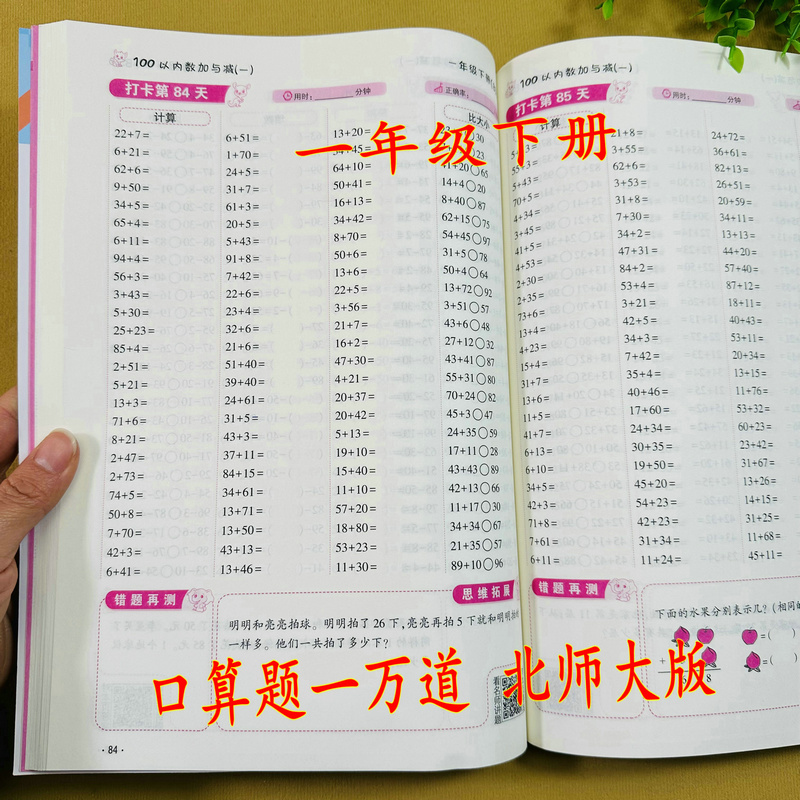 100以内数加与减(一)
一年级下册
打卡第 84 天
用时:
分钟
正确率:
计算
22+7=
6+21=
62+6=
9+50=
34+5=
65+4=
6+11=
94+4=
56+3=
3+43=
5+30=
25+23=
85+4=
2+51=
5+21=
13+3=
71+6=
8+21=
2+47=
2+73=
74+5=
50+8=
7+70=
42+3=
6+41=
6+51=
1+70=
24+5=
31+7=
61+3=
20+5=
5+43=
91+8=
7+42=
22+6=
23+4=
32+6=
21+6=
51+40=
39+40=
24+61=
31+5=
43+3=
37+11=
84+15=
34+61=
13+71=
13+50=
43+13=
13+46=
13+20=
64+10=
50+41=
16+13=
34+42=
8+70=
50+6=
13+6=
22+5=
3+56=
21+7=
16+2=
47+30=
4+21=
20+37=
20+42=
5+13=
19+10=
15+40=
11+10=
57+20=
18+80=
53+23=
11+30=
比大小
30
23
41+20○65
14+4○20
8+40○87
62+15○75
54+45○97
31+5○78
50+4○64
13+72○92
3+51○57
43+6○48
27+12○32
43+41○87
55+31○80
70+24○82
45+3○47
24+35○59
17+11○28
43+43○89
42+13○66
11+17○30
34+34○67
21+35○57
89+10○96
错题再测
思维拓展
明明和亮亮拍球。明明拍了 26 下,亮亮再拍 5 下就和明明拍的
一样多。他们一共拍了多少下?
看名师讲题
· 84 ·
100以内数加与减(一)
打卡第 85 天
用时:
分钟
计算
55+3=
5+43=
70+5=
4+34=
3+45=
41+5=
4+53=
2+30=
2+35=
73+6=
13+4=
4+23=
15+4=
31+7=
13+6=
11+5=
41+7=
6+13=
6+10=
5+34=
42+3=
71+8=
7+61=
6+11=
21+8=
3+55=
62+6=
3+53=
31+8=
7+30=
34+2=
47+31=
84+2=
53+4=
3+21=
42+5=
34+3=
7+42=
35+4=
40+46=
17+60=
24+34=
30+35=
19+50=
45+20=
54+23=
42+23=
31+34=
11+24=
24+72=
36+61=
82+13=
26+51=
20+59=
34+11=
13+13=
44+20=
57+40=
87+12=
18+11=
40+43=
53+11=
20+34=
13+15=
11+76=
53+32=
60+23=
23+42=
31+67=
13+26=
14+15=
31+25=
11+68=
45+11=
错题再测
下面的水果分别表示几?(相同的
=(
+
=(
8
一年级下册
口算题一万道 北师大版